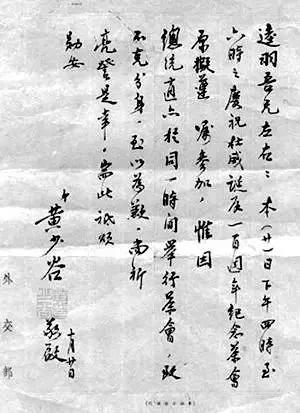 逵羽吾兄左右：本（廿）日下午四時至
六時之慶祝杜威誕辰一百週年紀念茶會
原擬遵囑參加，惟因
總統適亦於同一時間舉行茶會，致
不克分身，至以為歉，尚祈
亮詧是幸。耑此祗頌
勛安
弟
黃少谷
敬啟
十月廿日
外交部